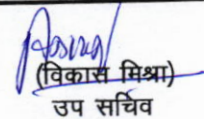 (विकास मिश्रा)
उप सर्चिव